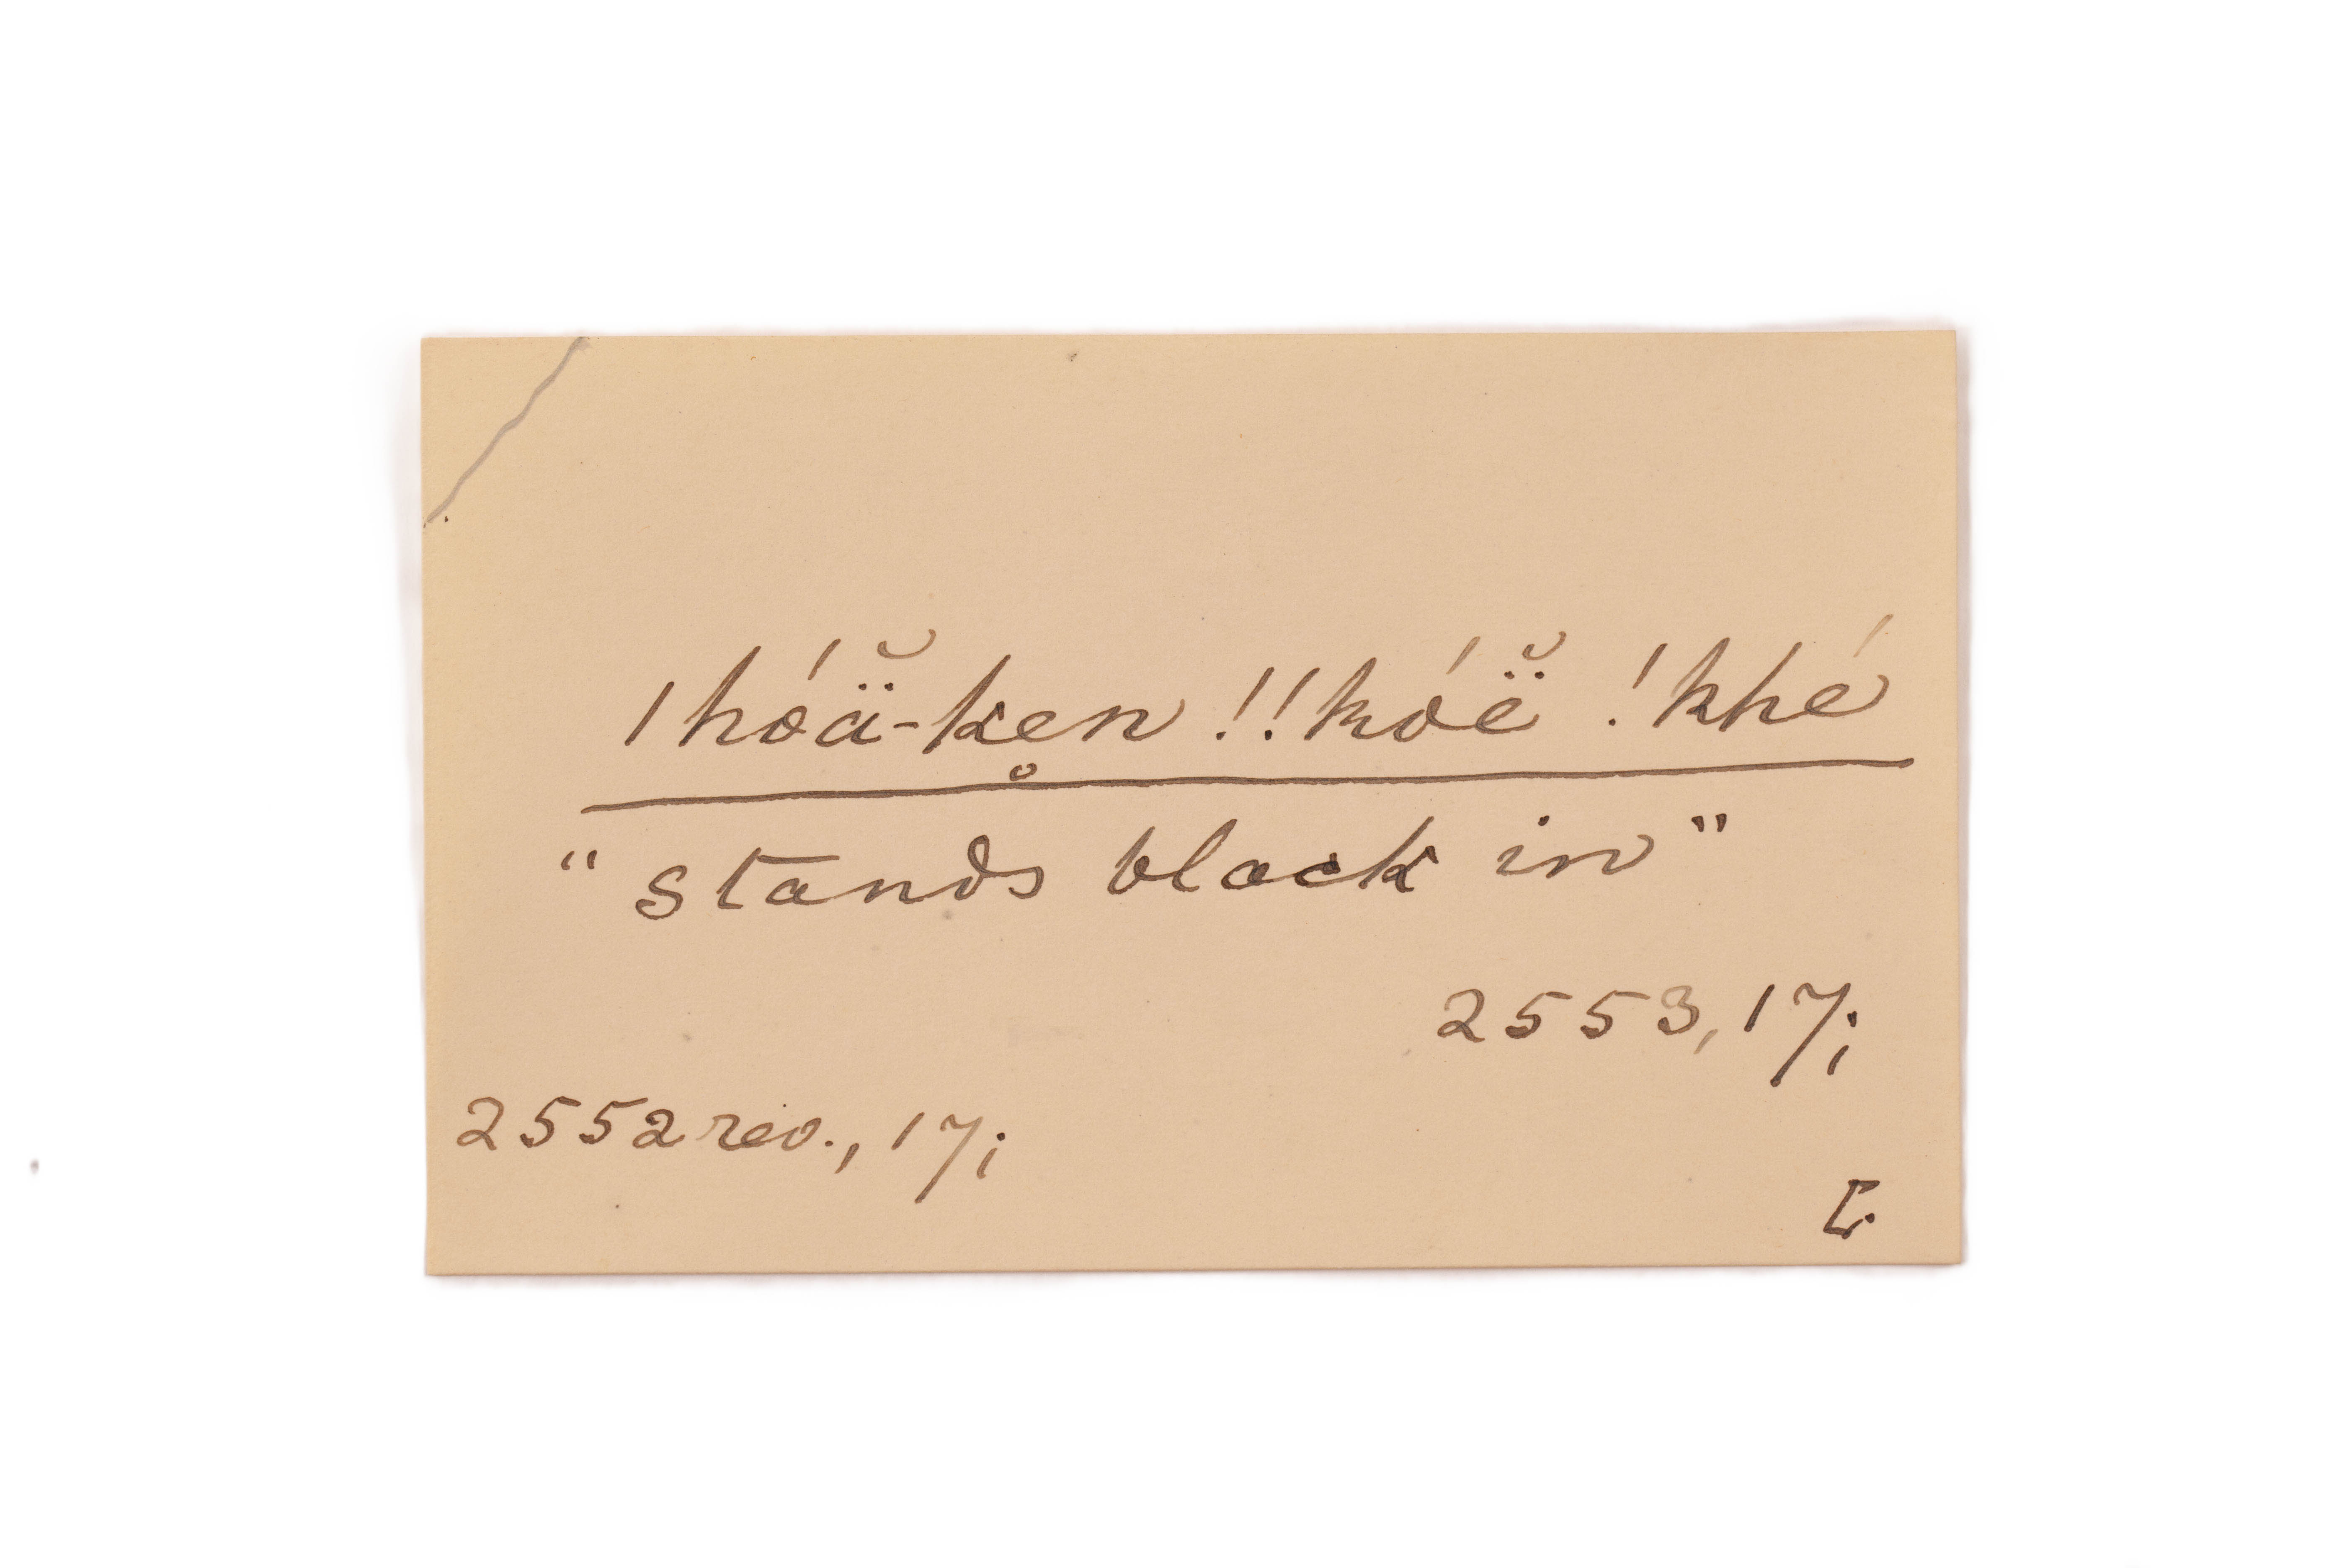 |hóä̆-ken̥ !!kóë̆ !khé
"stands black in"
2553, 17;
2552 rev., 17;